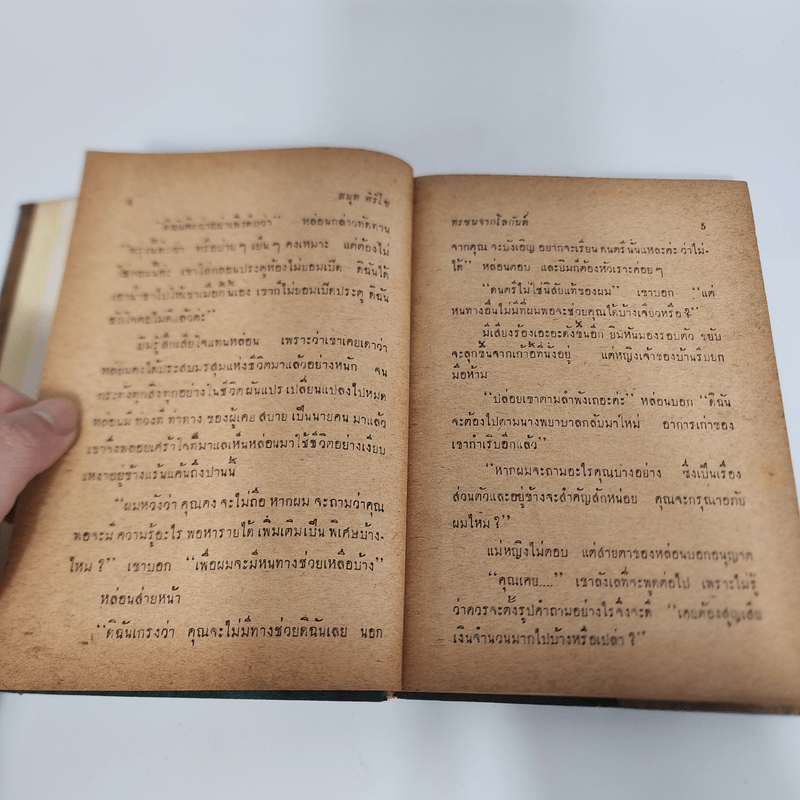 ๔ สมุท ศิริไข
"ดิฉันคิดว่าอย่าเพิ่งดีกว่า" หล่อนกล่าวทัดทาน
หรือบ่ายๆ เย็นๆ คงเหมาะ แต่ต้องไม่
เขาใส่กลอนประตูห้องไม่ยอมเปิด ดิฉันได้
เอาน้ำชาไปให้เขาเมื่อกี้นี้เอง เขาก็ไม่ยอมเปิดประตู ดิฉัน
ยิมรู้สึกเสียใจแทนหล่อน เพราะว่าเขาเคยเดาว่า
หล่อนคงได้ประสบมรสุมแห่งชีวิตมาแล้วอย่างหนัก จน
กระทั่งทุกสิ่งทุกอย่างในชีวิต ผันแปร เปลี่ยนแปลงไปหมด
หล่อนมี ท่วงที ท่าทาง ของผู้เคย สบาย เป็นนายคน มาแล้ว
เขาจึงพลอยเศร้าใจที่มาแลเห็นหล่อนมาใช้ชีวิตอย่างเงียบ
เหงาอยู่ข้างแร้นแค้นถึงปานนี้
"ผมหวังว่า คุณคง จะไม่ถือ หากผม จะถามว่าคุณ
พอจะมี ความรู้อะไร พอหารายได้ เพิ่มเติมเป็น พิเศษบ้าง-
ไหม ?" เขาบอก "เพื่อผมจะมีหนทางช่วยเหลือบ้าง"
หล่อนส่ายหน้า
"ดิฉันเกรงว่า คุณจะไม่มีทางช่วยดิฉันเลย นอก
ทรชนจากโลกันต์ 5
จากคุณ จะบังเอิญ อยากจะเรียน ดนตรีนั่นแหละค่ะ ว่าไม่-
ได้" หล่อนตอบ และยิมก็ต้องหัวเราะค่อยๆ
"ดนตรีไม่ใช่นิสัยแท้ของผม" เขาบอก "แต่
หนทางอื่นไม่มีที่ผมพอจะช่วยคุณได้บ้างเจียวหรือ ?"
มีเสียงร้องเอะอะดังขึ้นอีก ยิมหันมองรอบตัว ขยับ
จะลุกขึ้นจากเก้าอี้ที่นั่งอยู่ แต่หญิงเจ้าของบ้านรีบยก
มือห้าม
"ปล่อยเขาตามลำพังเถอะค่ะ" หล่อนบอก "ดิฉัน
จะต้องไปตามนางพยาบาลกลับมาใหม่ อาการเก่าของ
เขากำเริบอีกแล้ว"
"หากผมจะถามอะไรคุณบางอย่าง ซึ่งเป็นเรื่อง
ส่วนตัวและอยู่ข้างจะสำคัญสักหน่อย คุณจะกรุณาอภัย
ผมไหม ?"
แม่หญิงไม่ตอบ แต่สายตาของหล่อนบอกอนุญาต
"คุณเคย...." เขาลังเลที่จะพูดต่อไป เพราะไม่รู้
ว่าควรจะตั้งรูปคำถามอย่างไรจึงจะดี "เคยต้องสูญเสีย
เงินจำนวนมากไปบ้างหรือเปล่า ?"